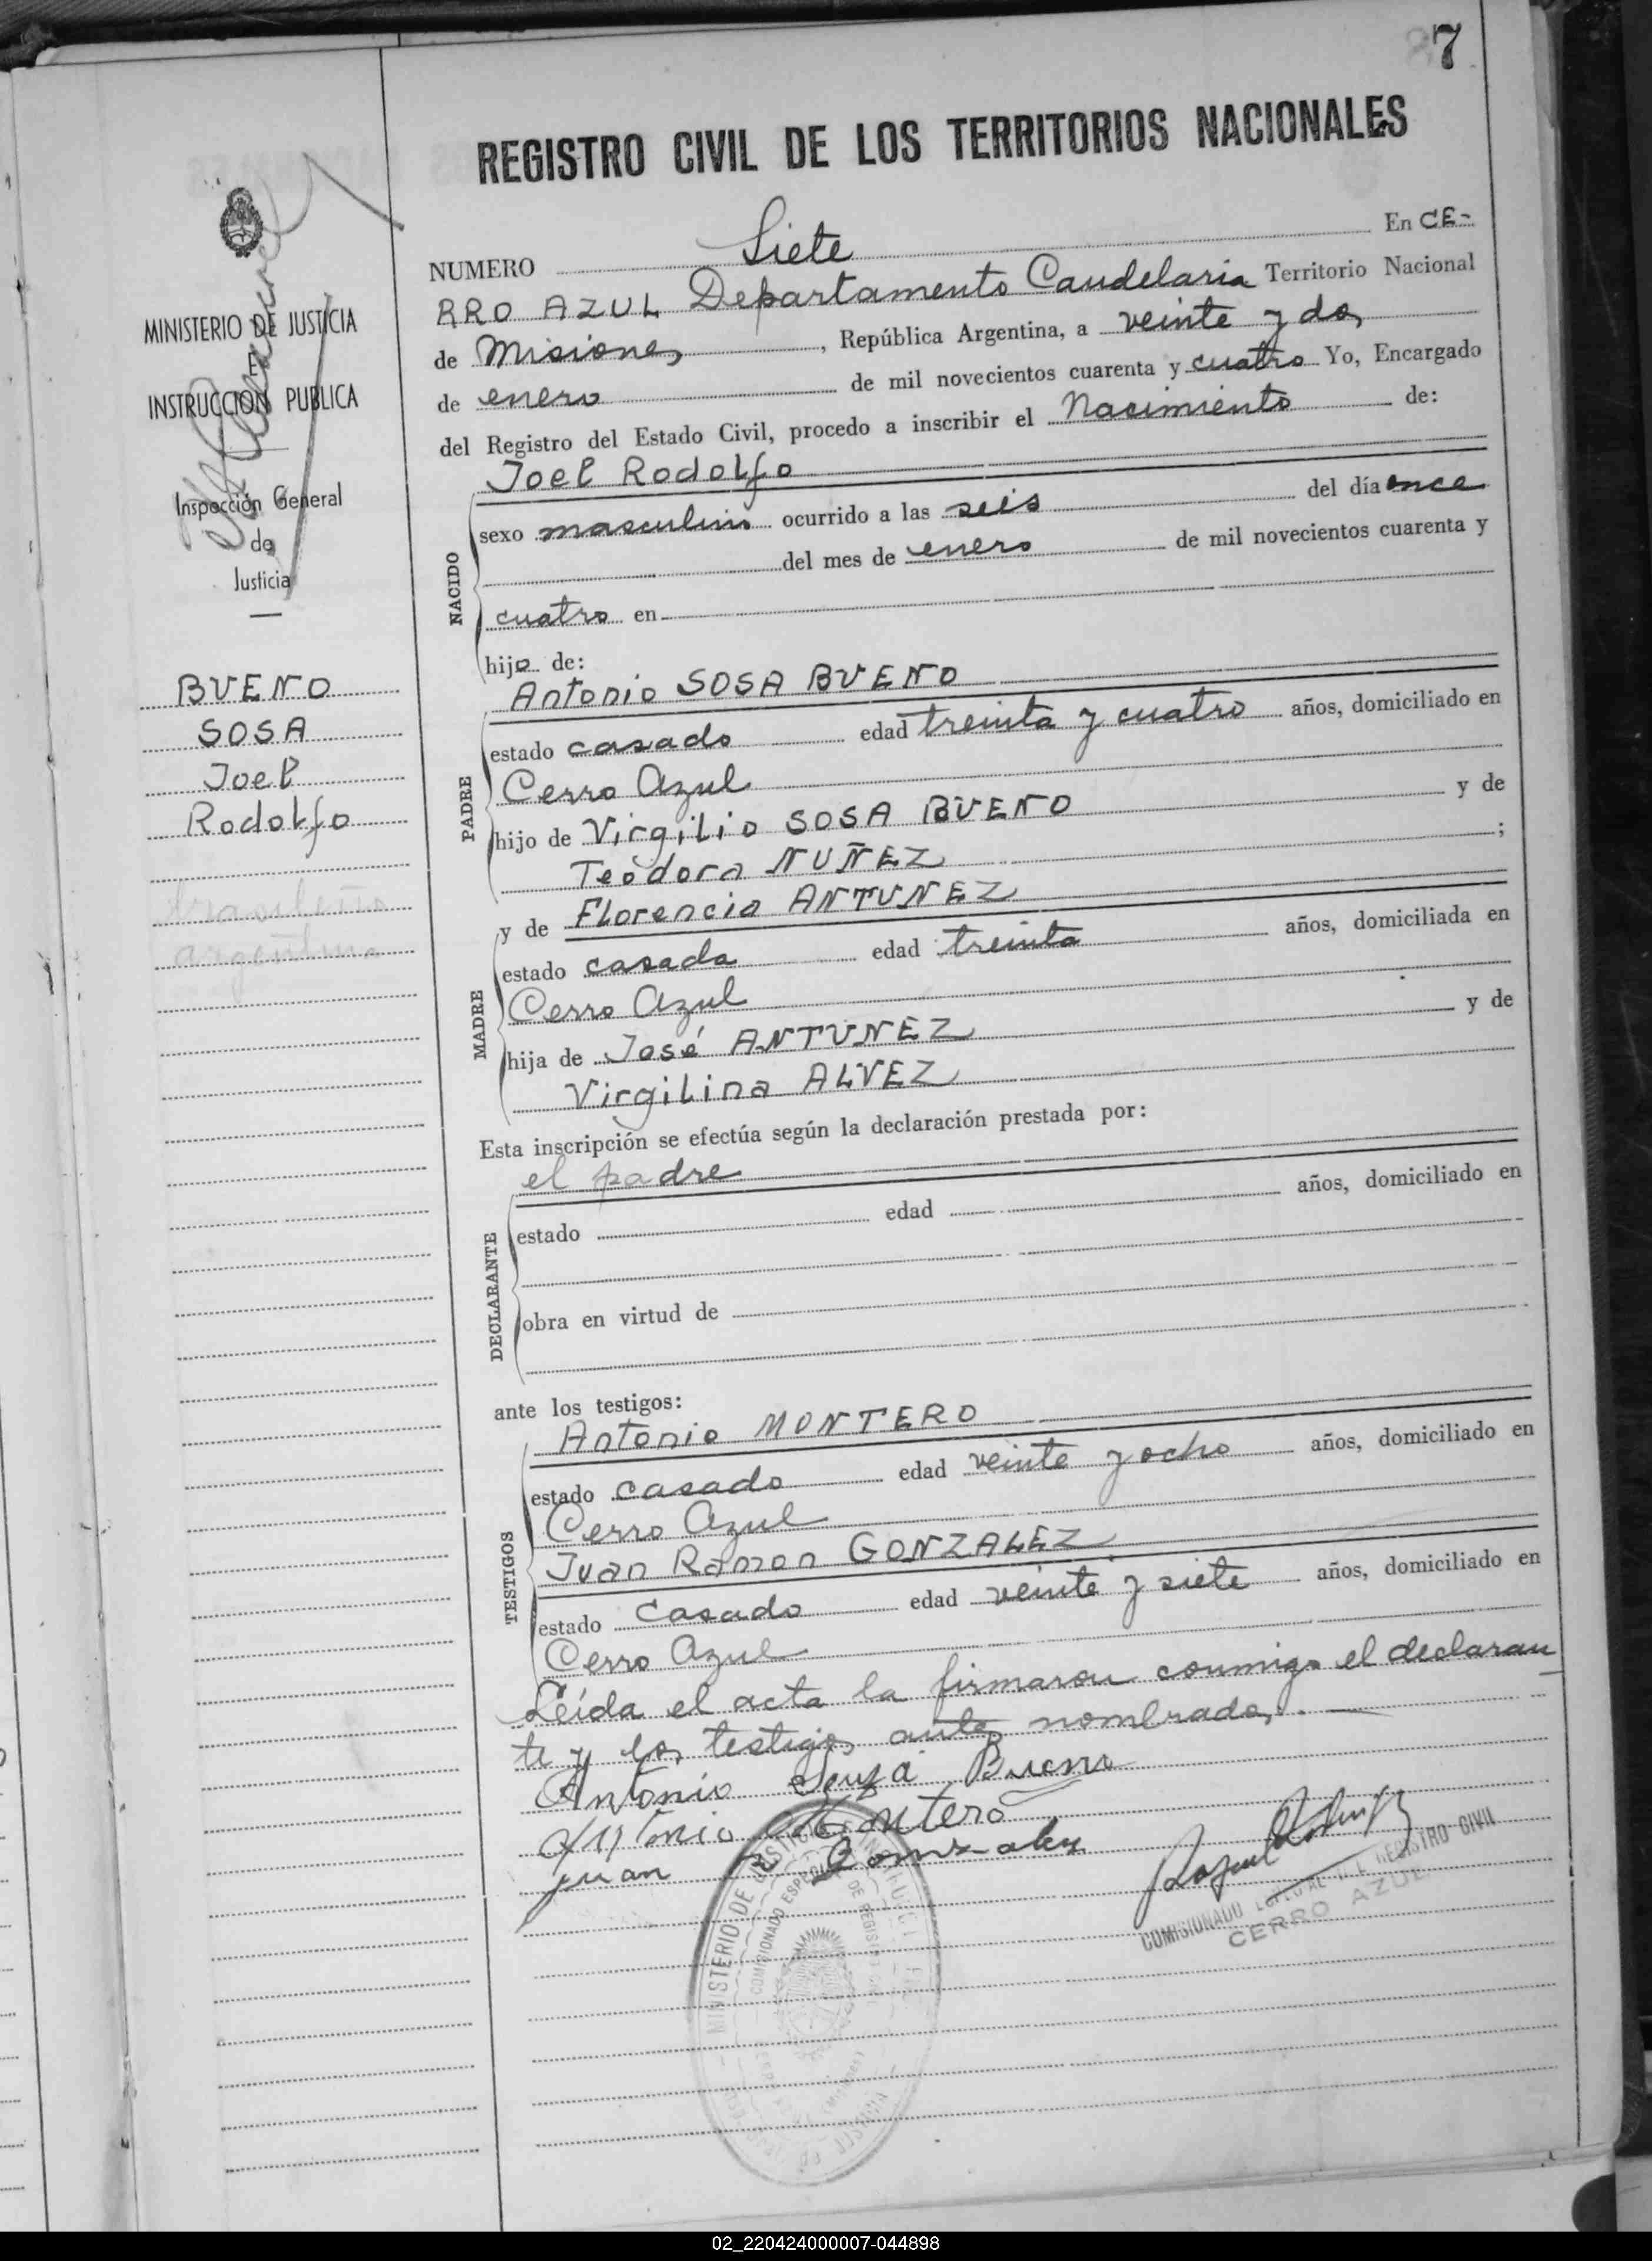 7
REGISTRO CIVIL DE LOS TERRITORIOS NACIONALES
NUMERO Siete En CE-
RRO AZUL Departamento Candelaria Territorio Nacional
de Misiones, República Argentina, a veinte y dos
de enero de mil novecientos cuarenta y cuatro Yo, Encargado
del Registro del Estado Civil, procedo a inscribir el Nacimiento de:
MINISTERIO DE JUSTICIA
E
INSTRUCCION PUBLICA
Inspección General
de
Justicia
BUENO
SOSA
Joel
Rodolfo
brasileño
argentina
NACIDO
Joel Rodolfo
sexo masculino ocurrido a las seis del día once
del mes de enero de mil novecientos cuarenta y
cuatro en
hijo de:
PADRE
Antonio SOSA BUENO
estado casado edad treinta y cuatro años, domiciliado en
Cerro Azul
hijo de Virgilio SOSA BUENO y de
Teodora NUÑEZ ;
MADRE
y de Florencia ANTUNEZ
estado casada edad treinta años, domiciliada en
Cerro Azul
hija de José ANTUNEZ y de
Virgilina ALVEZ
Esta inscripción se efectúa según la declaración prestada por:
DECLARANTE
el padre
estado edad años, domiciliado en
obra en virtud de
ante los testigos:
TESTIGOS
Antonio MONTERO
estado casado edad veinte y ocho años, domiciliado en
Cerro Azul
Juan Ramon GONZALEZ
estado casado edad veinte y siete años, domiciliado en
Cerro Azul
Leída el acta la firmaron conmigo el declaran
te y los testigos antes nombrados.
Antonio Souza Bueno
Antonio Montero
Juan R Gonzalez
COMISIONADO REGISTRO CIVIL
CERRO AZUL
MINISTERIO DE JUSTICIA E INSTRUCC
COMISIONADO ESPECIAL DE REGISTRO
02_220424000007-044898